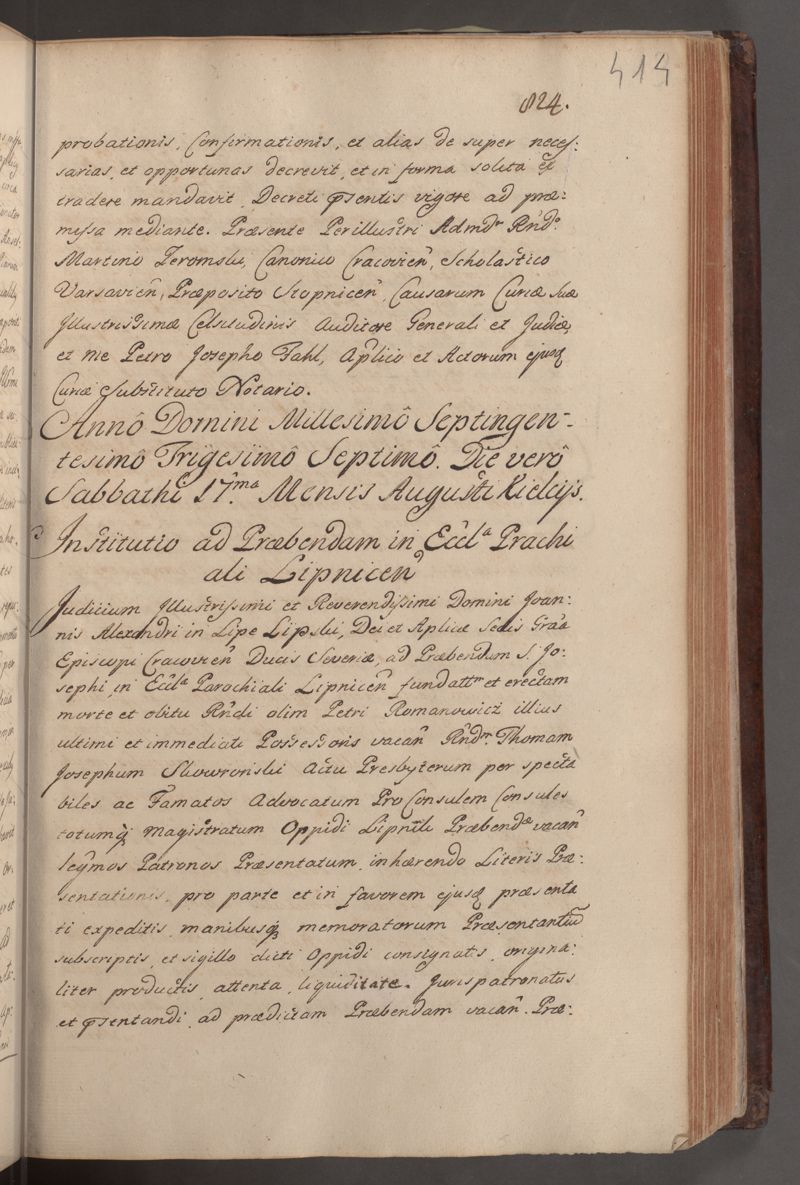 414
824.
probationis, Confirmationis, et alias de super neces:
sarias, et opportunas decrevit, et in forma solita ex
tradere mandavit, Decreti pſentis vigore ad præ:
missa mediante. Præsente Perillustri Admdr Rńdo
Martino Jeromski, Canonico Cracovień, Scholastico
Varsavień, Præposito Stopnicen, Causarum Curiæ Suæ
Illustrissimæ Celsitudinis Auditore Generali et Judice,
et me Petro Josepho Fahl, Aplico et Actorum ejusq
Curiæ Substituto Notario.
Annô Domini Millesimô Septingen-
tesimô Trigesimô Septimô. Die verô
Sabbathi 17.ma Mensis Augusti Kielcijs.
Institutio ad Præbendam in Eccla Prachi
ali Lipnicen
Judicium Illustrissimi et Reverendissimi Domini Joan:
nis Alexandri in Lipe Lipski, Dei et Aplicæ Sedis Grâa
Episcopi Cracovień Ducis Severiæ, ad Præbendam S. Jo:
sephi, in Eccla Parochiali Lipnicen fundattm et erectam
morte et obitu Rńdi olim Petri Romanowicz illius
ultimi et immediati Possessoris vacań Rńdm Thomam
Josephum Skowronski Actu Presbyterum per specta
biles ac Famatos Advocatum Pro Consulem Consules
totumq Magistratum Oppidi Lipnik Præbendæ vacań
legmos Patronos Præsentatum, inhærendo Literis Præ:
sentationis, pro parte et in favorem ejusq præsenta
ti expeditis, manibusq memoratorum Præsentantium
subscriptis, et sigillo dicti Oppidi consignatis, origina:
liter productis, attenta, liquiditate. Jurispatronatus
et pſentandi, ad prædictam Præbendam vacań. Præ: